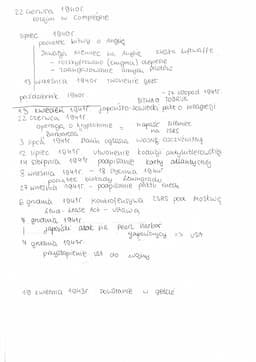 22 czerwca 1940r
rozejm w Compiègne
lipiec 1940r
początek bitwy o Anglię
inwazja Niemiec na Anglię klęska Luftwaffe
- rozszyfrowano (enigma) alianci
- zaangażowanie innych pilotów
13 września 1940r
październik 1940r
- 27 listopad 1941r
BITWA TOBRUK
13 kwiecień 1941r japońsko-sowiecki pakt o nieagresji
22 czerwca 1941r
operacja o kryptonimie = napaść Niemiec
"Barbarossa" na ZSRS
3 lipca 1941r Stalin ogłasza wojnę ojczyźnianą
12 lipiec 1941r utworzenie koalicji antyhitlerowskiej
14 sierpnia 1941r podpisanie karty atlantyckiej
8 września 1941r - 18 stycznia 1944r
początek blokady Leningradu
27 września 1941r - podpisanie paktu trzech
6 grudnia 1941r kontrofensywa ZSRS pod Moskwą
Lend-Lease Act - ustawa
7 grudnia 1941r
japoński atak na Pearl Harbor
Japończycy => USA
7 grudnia 1941r
przystąpienie USA do wojny
19 kwietnia 1943r powstanie w getcie